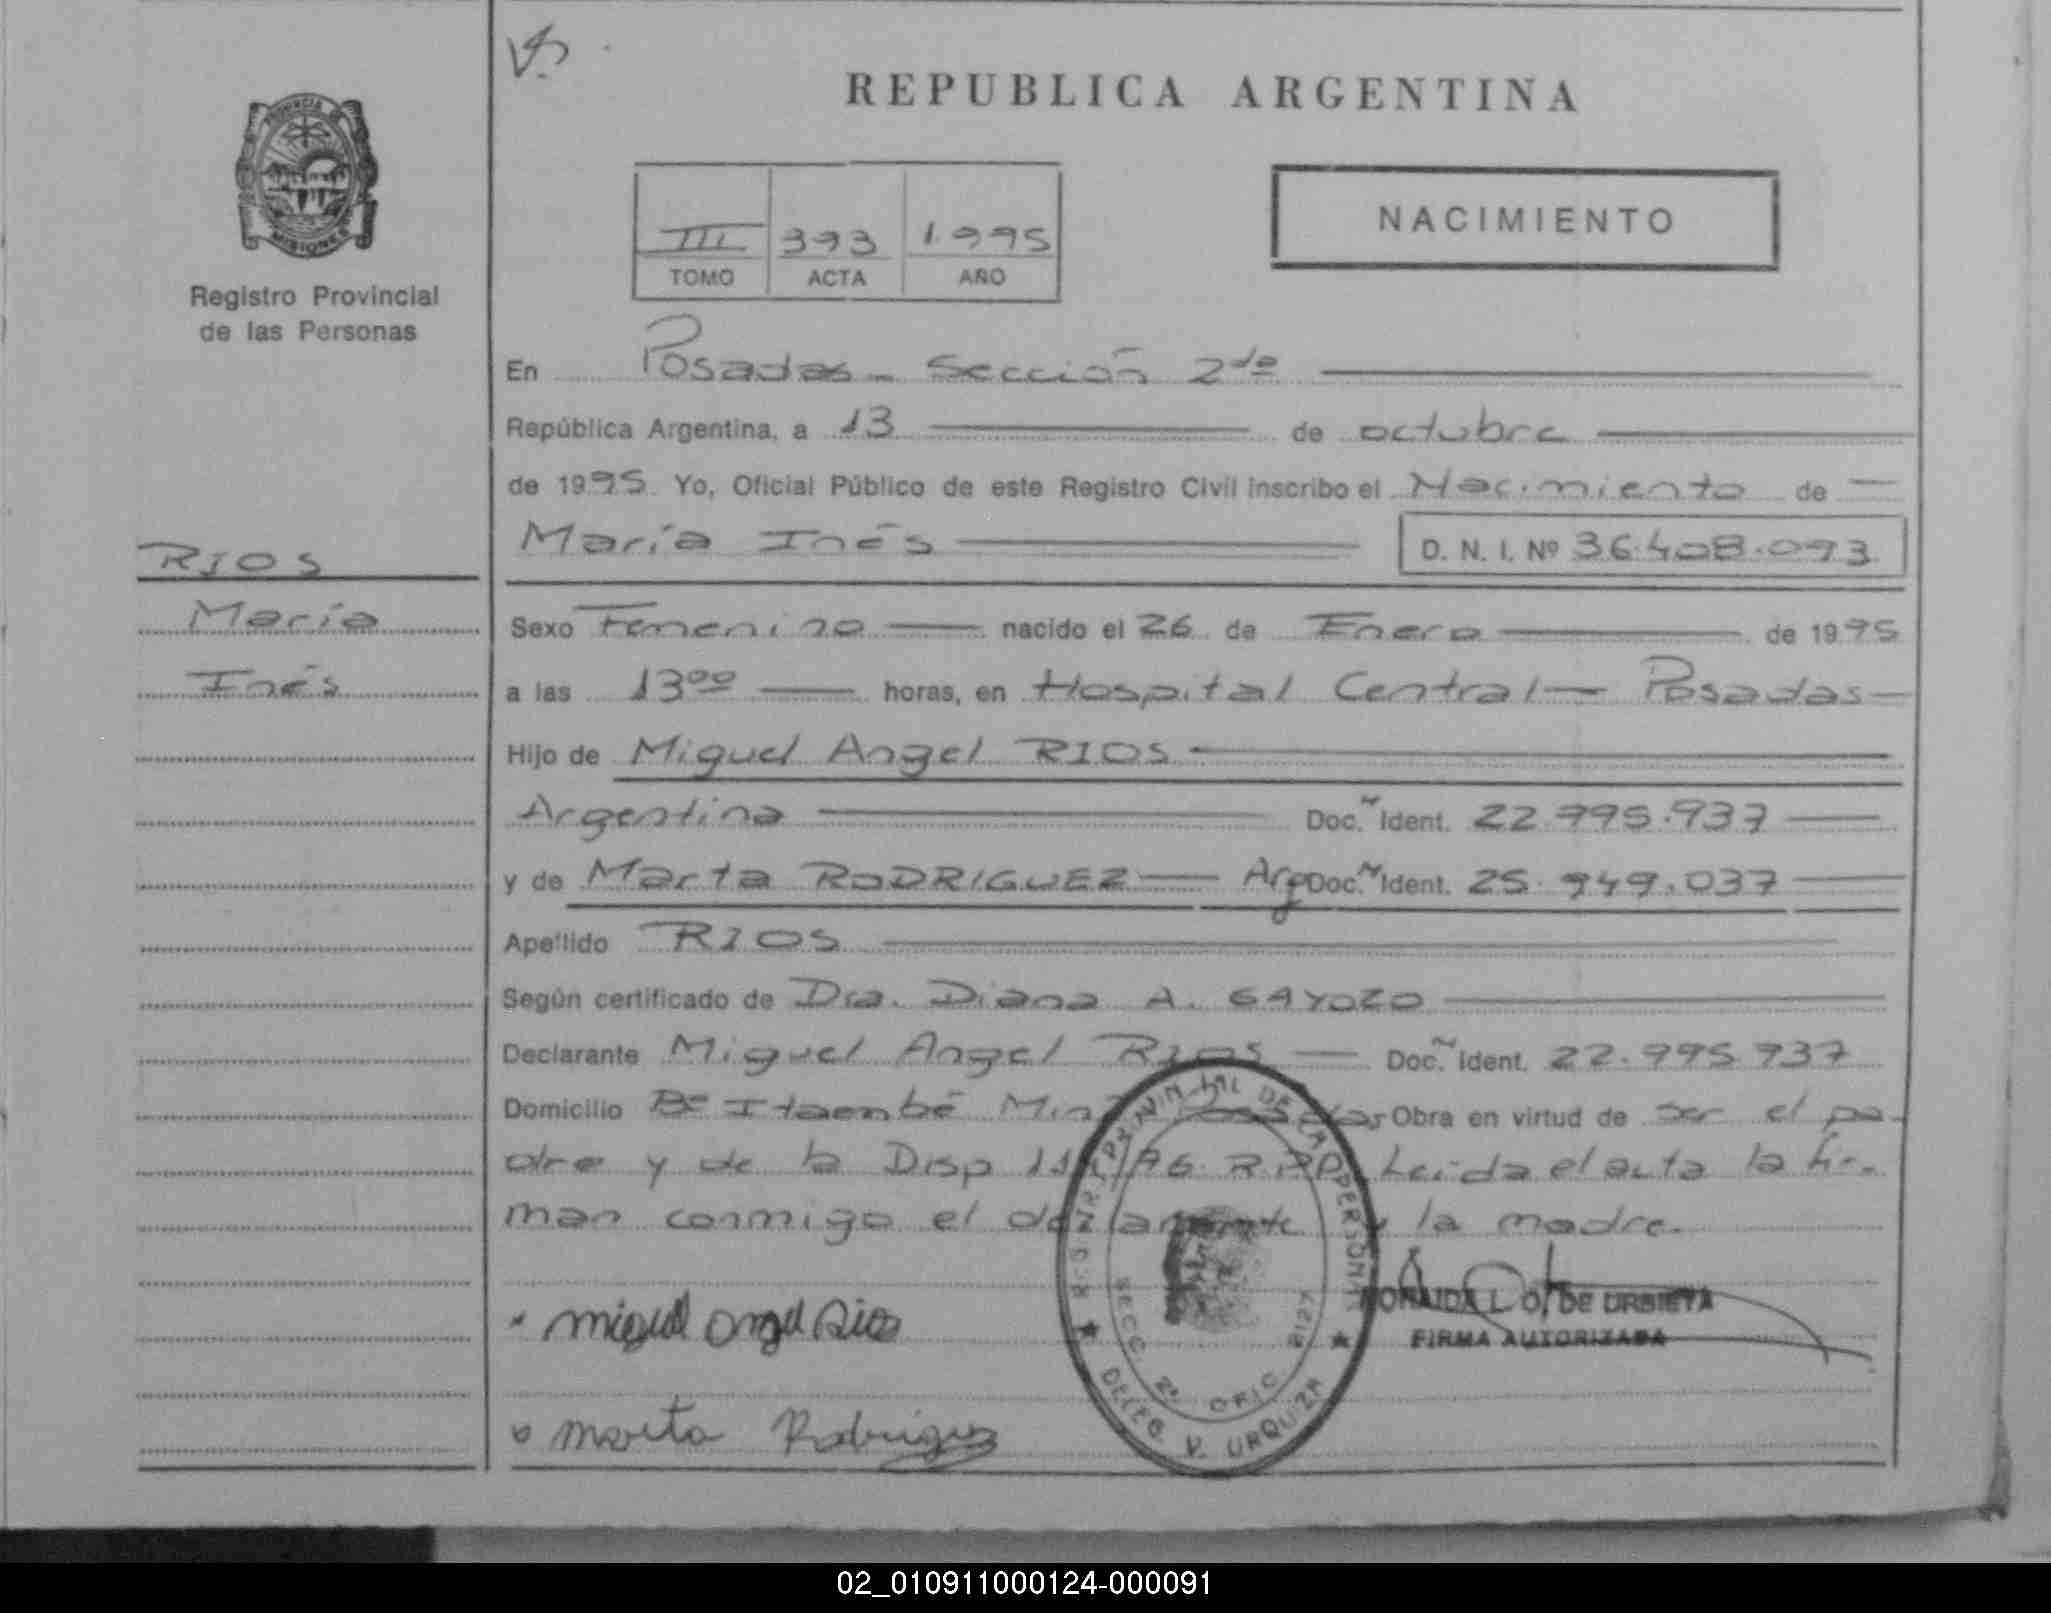 REPUBLICA ARGENTINA
PROVINCIA DE
MISIONES
Registro Provincial
de las Personas
III 393 1.995
TOMO ACTA AÑO
NACIMIENTO
En Posadas - Sección 2da
República Argentina, a 13 de octubre
de 1995 Yo, Oficial Público de este Registro Civil inscribo el Nacimiento de
María Inés D. N. I. Nº 36.408.093
RIOS
María
Inés
Sexo Femenino nacido el 26 de Enero de 1995
a las 13oo horas, en Hospital Central - Posadas
Hijo de Miguel Angel RIOS
Argentina Doc. Ident. 22.995.937
y de Marta RODRIGUEZ Arg Doc. Ident. 25.949.037
Apellido RIOS
Según certificado de Dra. Diana A. GAYOZO
Declarante Miguel Angel RIOS Doc. Ident. 22.995.937
Domicilio Bº Itaembé Miní Posadas Obra en virtud de ser el pa-
dre y de la Disp /96 R.P.P. Leída el acta la fir-
man conmigo el declarante y la madre.
Miguel Angel Rios
Marta Rodriguez
PROVINCIAL DE LAS PERSONAS
SECC. 2ª OFIC.
DELEG. V. URQUIZA
L. O. DE URBIETA
FIRMA AUTORIZADA
02_010911000124-000091